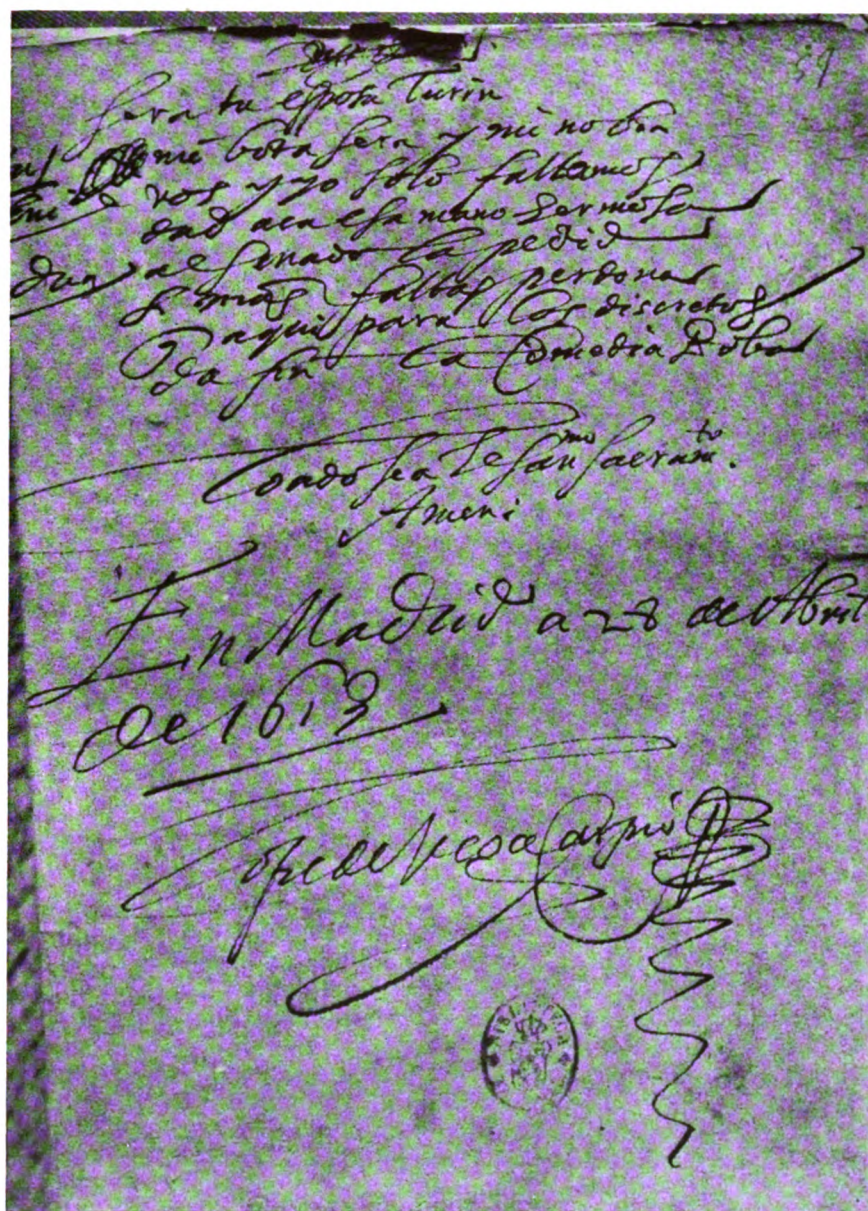 59
sera tu esposa Turin
mi bota sera y mi nobia
vos y yo solo faltamos
dad aca esa mano hermosa
al senado la pedid
si nras faltas perdona
q aqui para los discretos
da fin la Comedia boba
Loado sea el SSanmo Sacramto.
Amen:
En Madrid a 28 de Abril
de 1613
Lope de Vega Carpio